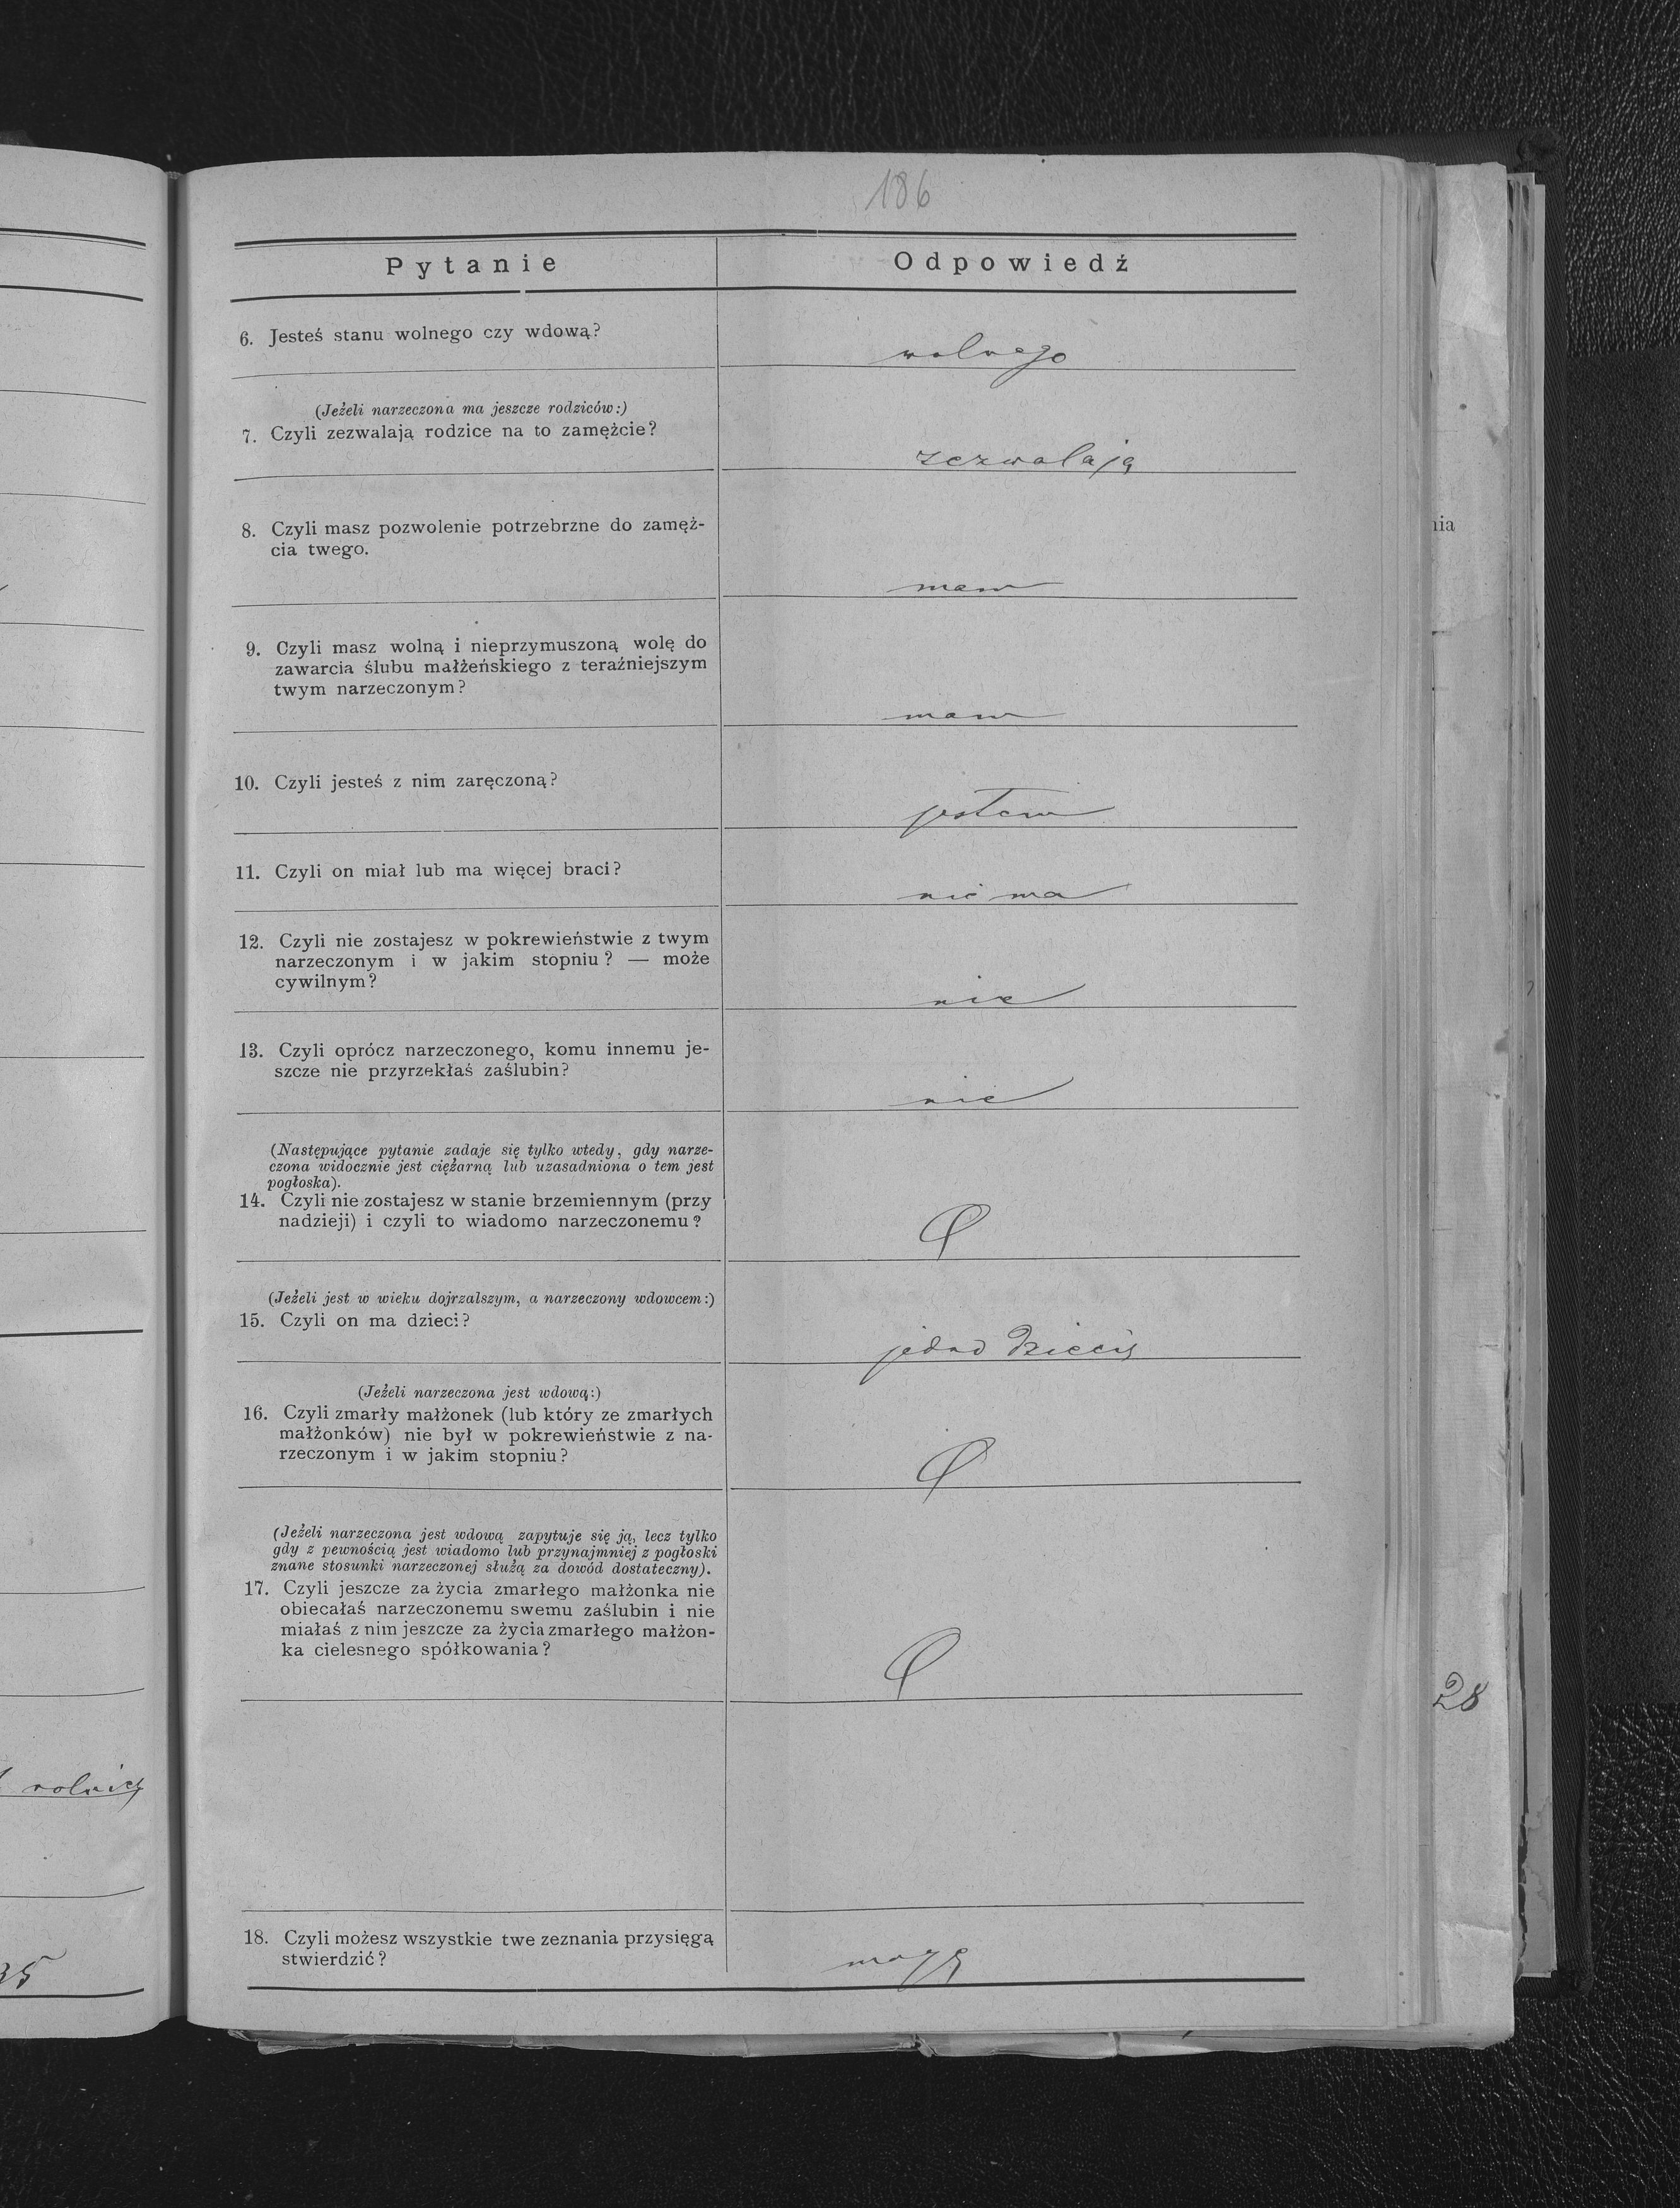 186
Pytanie
Odpowiedź
6. Jesteś stanu wolnego czy wdową?
wolnego
(Jeżeli narzeczona ma jeszcze rodziców:)
7. Czyli zezwalają rodzice na to zamężcie?
zezwalają
8. Czyli masz pozwolenie potrzebrzne do zamęż-
cia twego.
mam
9. Czyli masz wolną i nieprzymuszoną wolę do
zawarcia ślubu małżeńskiego z teraźniejszym
twym narzeczonym?
mam
10. Czyli jesteś z nim zaręczoną?
jestem
11. Czyli on miał lub ma więcej braci?
nie ma
12. Czyli nie zostajesz w pokrewieństwie z twym
narzeczonym i w jakim stopniu? — może
cywilnym?
nie
13. Czyli oprócz narzeczonego, komu innemu je-
szcze nie przyrzekłaś zaślubin?
nie
(Następujące pytanie zadaje się tylko wtedy, gdy narze-
czona widocznie jest ciężarną lub uzasadniona o tem jest
pogłoska).
14. Czyli nie zostajesz w stanie brzemiennym (przy
nadzieji) i czyli to wiadomo narzeczonemu?
(Jeżeli jest w wieku dojrzalszym, a narzeczony wdowcem:)
15. Czyli on ma dzieci?
jedno dziecię
(Jeżeli narzeczona jest wdową:)
16. Czyli zmarły małżonek (lub który ze zmarłych
małżonków) nie był w pokrewieństwie z na-
rzeczonym i w jakim stopniu?
(Jeżeli narzeczona jest wdową zapytuje się ją, lecz tylko
gdy z pewnością jest wiadomo lub przynajmniej z pogłoski
znane stosunki narzeczonej służą za dowód dostateczny).
17. Czyli jeszcze za życia zmarłego małżonka nie
obiecałaś narzeczonemu swemu zaślubin i nie
miałaś z nim jeszcze za życia zmarłego małżon-
ka cielesnego spółkowania?
18. Czyli możesz wszystkie twe zeznania przysięgą
stwierdzić?
mogę
nia
28
35